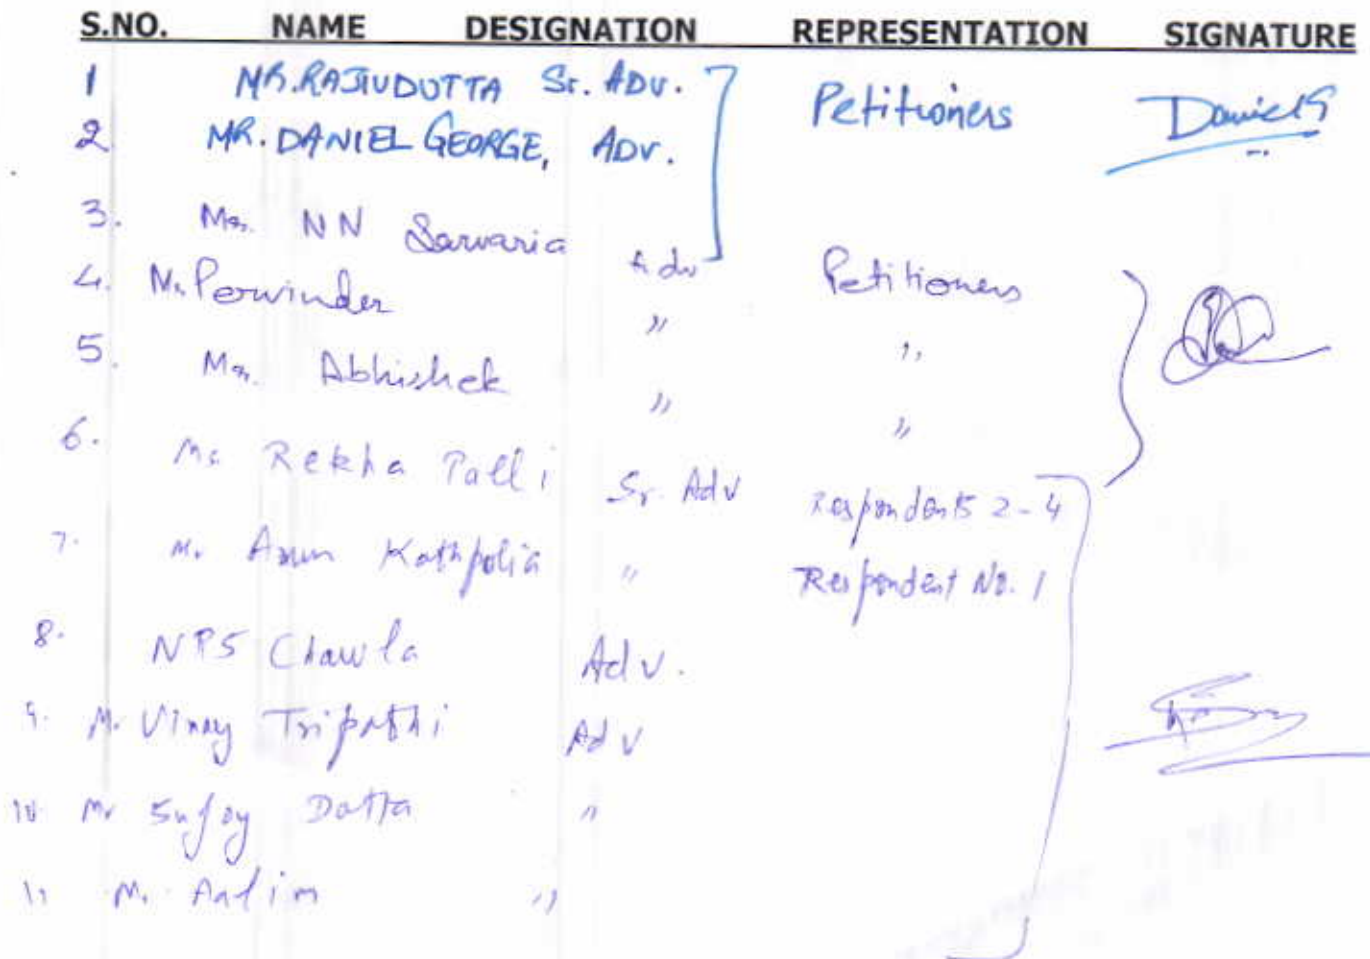 S.NO. NAME DESIGNATION REPRESENTATION SIGNATURE
1 MR. RAJIV DUTTA Sr. ADV. Petitioners Daniel G
2 MR. DANIEL GEORGE, ADV.
3. Mr. NN Sarvaria Adv Petitioners
4. Mr. Perwinder " "
5. Mr. Abhishek " "
6. Ms Rekha Palli Sr. Adv Respondents 2-4
7. Mr Arun Kathpolia " Respondent No. 1
8. NPS Chawla Adv.
9. Mr. Vinay Tripathi Adv
10 Mr Sujoy Datta "
11 M. Aalim "